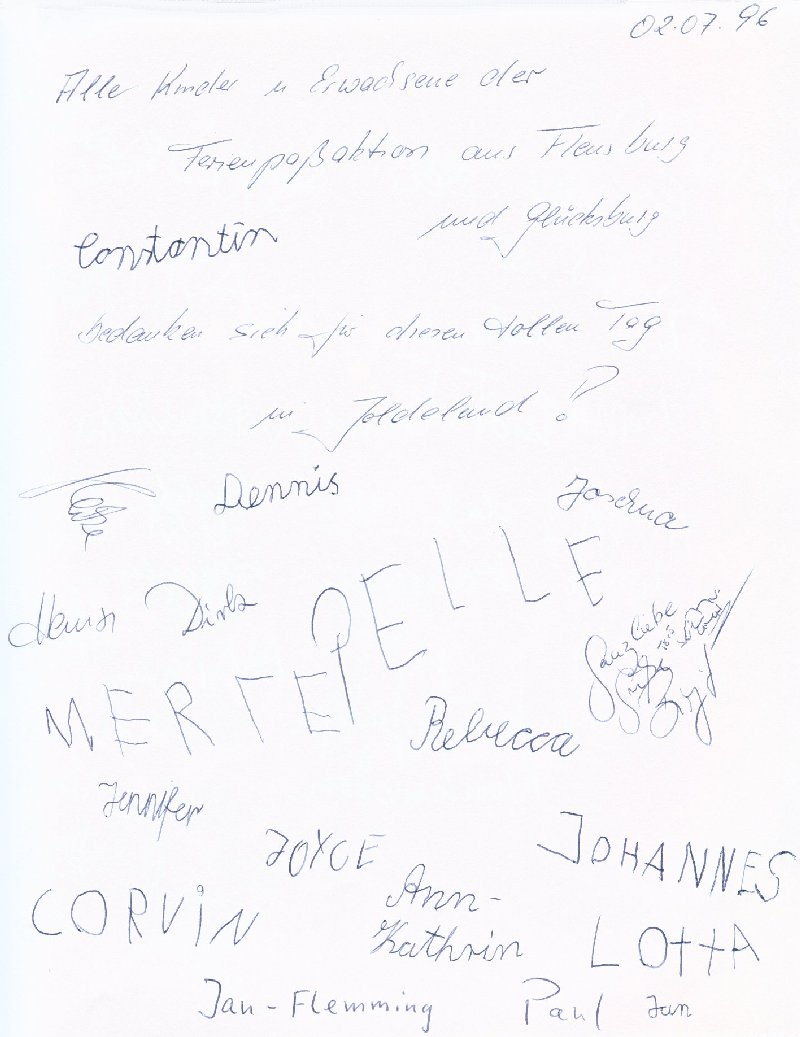 02.07.96
Alle Kinder u Erwachsene der
Ferienpaßaktion aus Flensburg
und Glücksburg
Constantin
bedanken sich für diesen tollen Tag
in Joldelund!
Dennis
Joschua
PELLE
Dirk
Ganz liebe
MERTE
Rebecca
Jennifer
JOYCE
JOHANNES
CORVIN
Ann-
Kathrin
LOTTA
Jan-Flemming
Paul
Jan